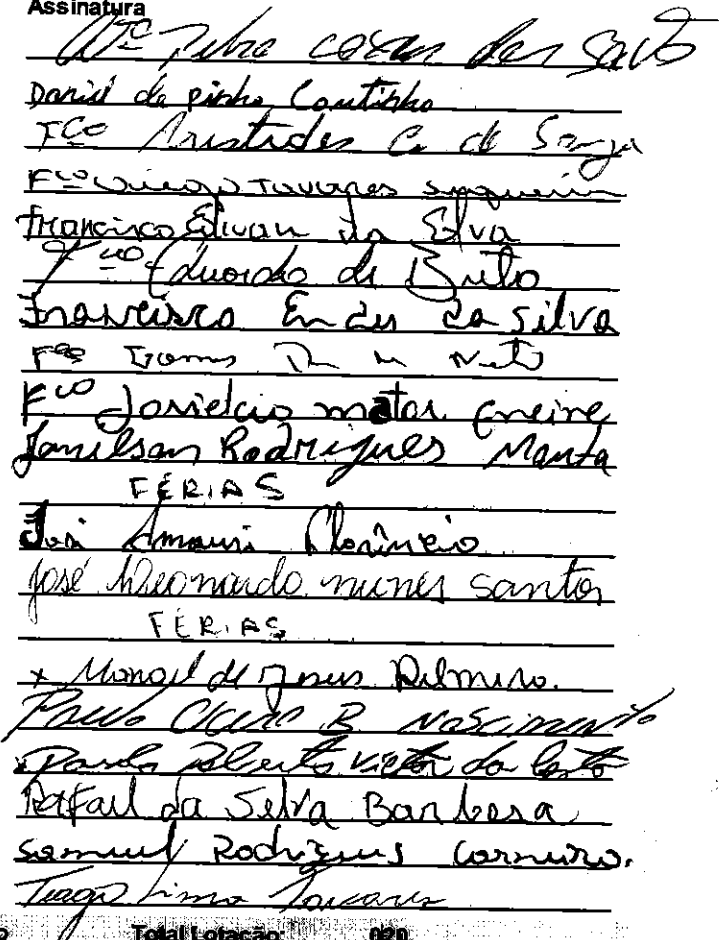 Assinatura
da
Daniel de pinho Coutinho
Fco Aristides C. de Souza
Fco Diego Tavares
Francisco Edivan da Silva
Fco Eduardo de Brito
Francisco da silva
Fco Neto
Fco Josielcio matos freire
Janilson Rodrigues Manta
FÉRIAS
José Amauri
José Weonardo nunes santos
FÉRIAS
x Manoel de Jesus Delmiro.
Paulo Cicero B Nascimento
Paulo Roberto Victor da Costa
Rafael da Selva Barbosa
Samuel Rodrigues Carneiro.
Tiago Lima Tavares
Total Lotação: 020